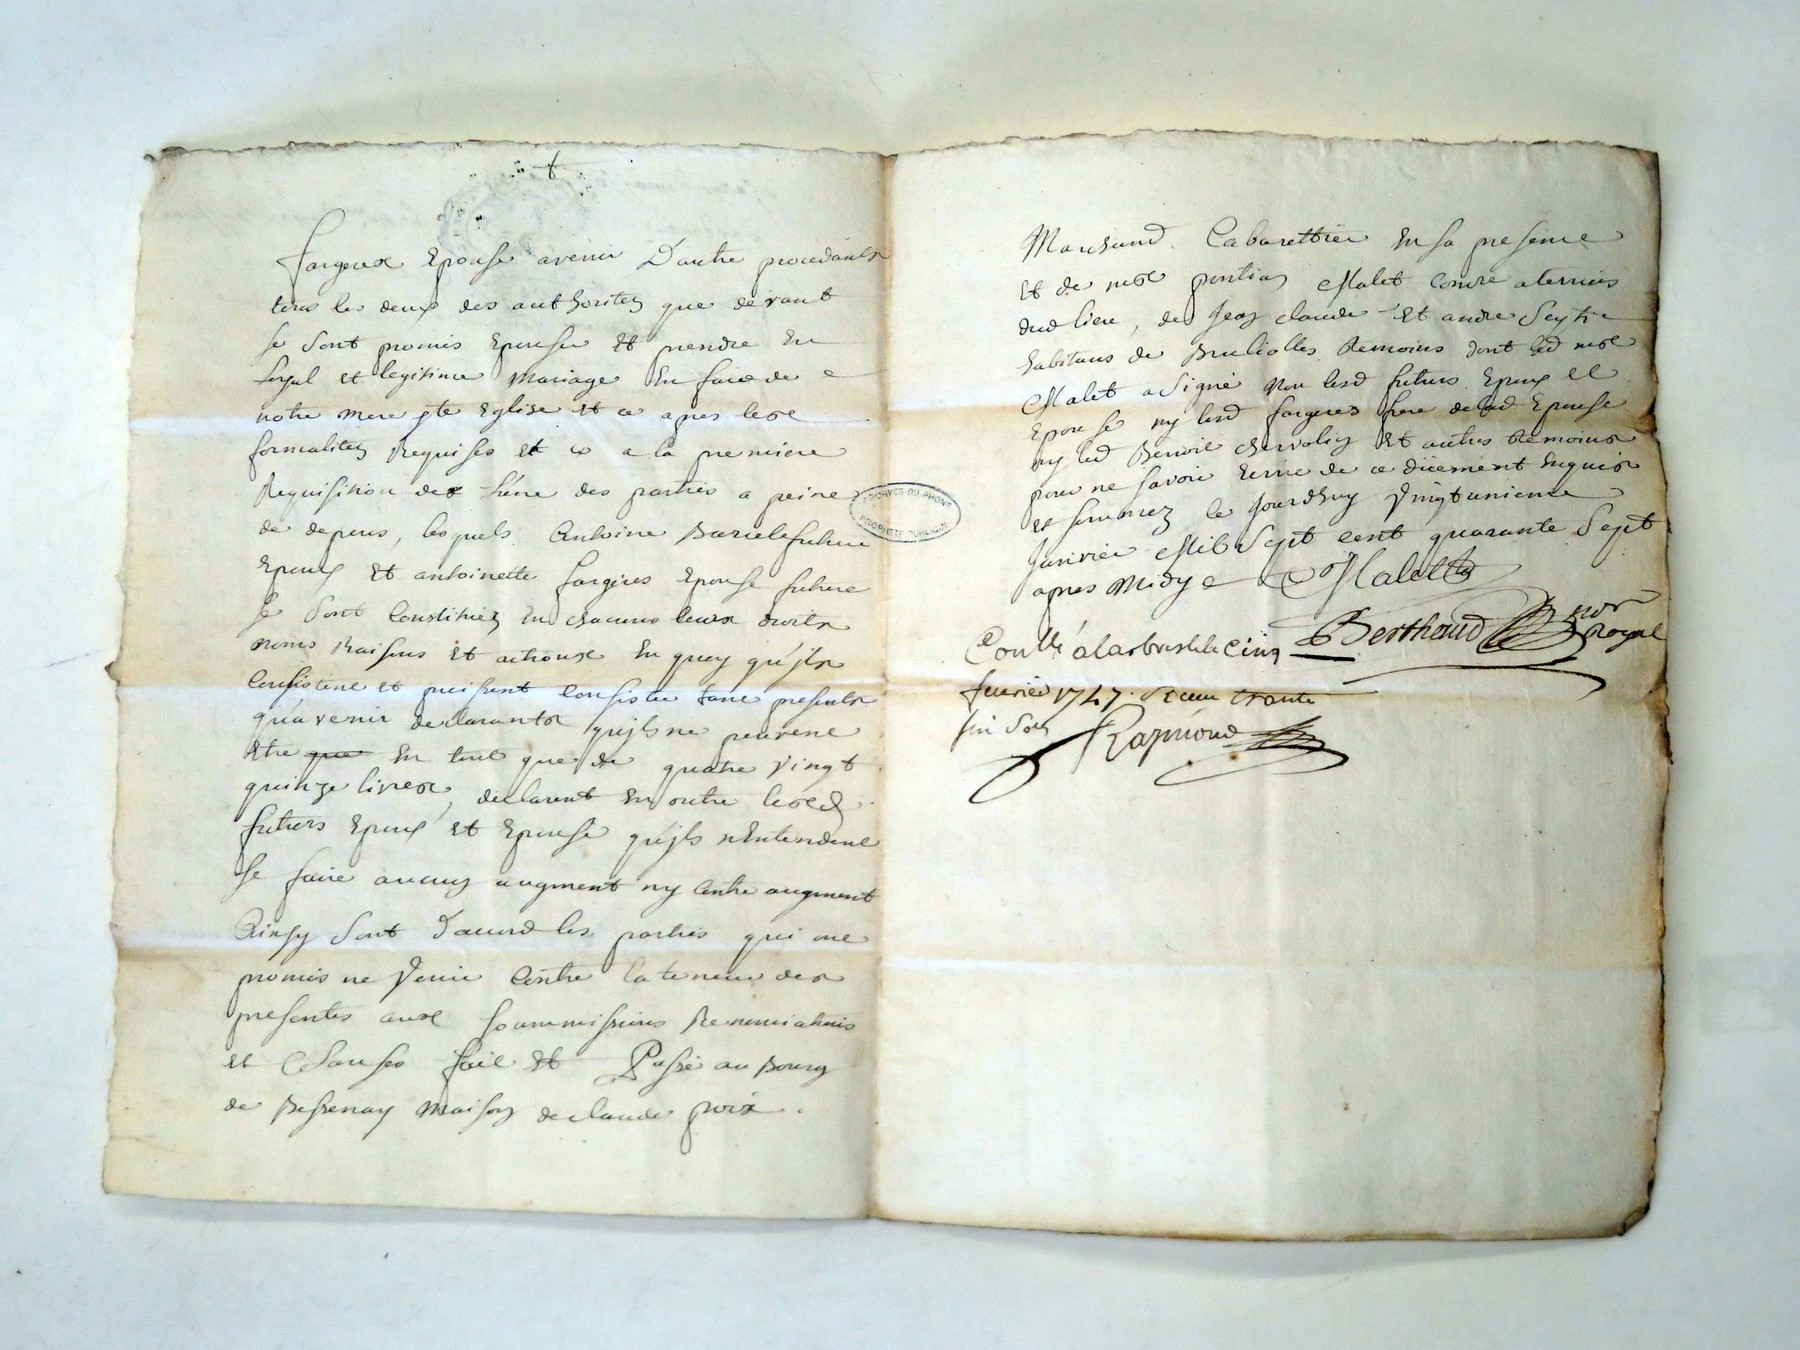 fargeres Epouse avenir D'autre procedants
tous les deux des authoritez que devant
se sont promis Epouser Et prendre En
loyal et legitime Mariage En face de
notre mere ste Eglise Et ce apres les
formalitez Requises Et ce a la premiere
Requisition de l'une des parties a peine
de depens, lesquels Antoine futur
Epoux Et antoinette fargeres Epouse future
se sont Constituez En chacuns leurs droits
noms Raisons Et actions En quoy qu'jls
Consistent et puissent Consister tant presents
qu'avenir declarants qu'jls ne peuvent
Etre que En tout que de quatre Vingt
quinze livres, declarent En outre lesd
futurs Epoux Et Epouse qu'jls n'Entendent
se faire aucun augment ny Contre augment
Ainsy sont D'acord les parties qui ont
promis ne Venir Contre la teneur des
presentes aux soummissions Renonciations
et Clauses fait Et Passé au Bourg
de Bessenay Maison de claude
Marchand Cabarettier En sa presence
Et de Malet
dud lieu, de Jean claude Et andre
habitans de Brulliolles temoins dont led
Malet a Signé Non lesd futurs Epoux Et
Epouse ny led fargeres frere de lad Epouse
ny led Benoit chervolin Et autres temoins
pour ne savoir Ecrire de ce düement Enquis
et sommez le jourdhuy Vingtunieme
Janvier Mil Sept cent quarante Sept
apres Midy Malet
Berthoud nore Royal
Conllé à Larbresle le Cinq
fevrier 1747. Receu trente
six sols
Raymond
ARCHIVES DU RHÔNE
PROPRIÉTÉ PUBLIQUE